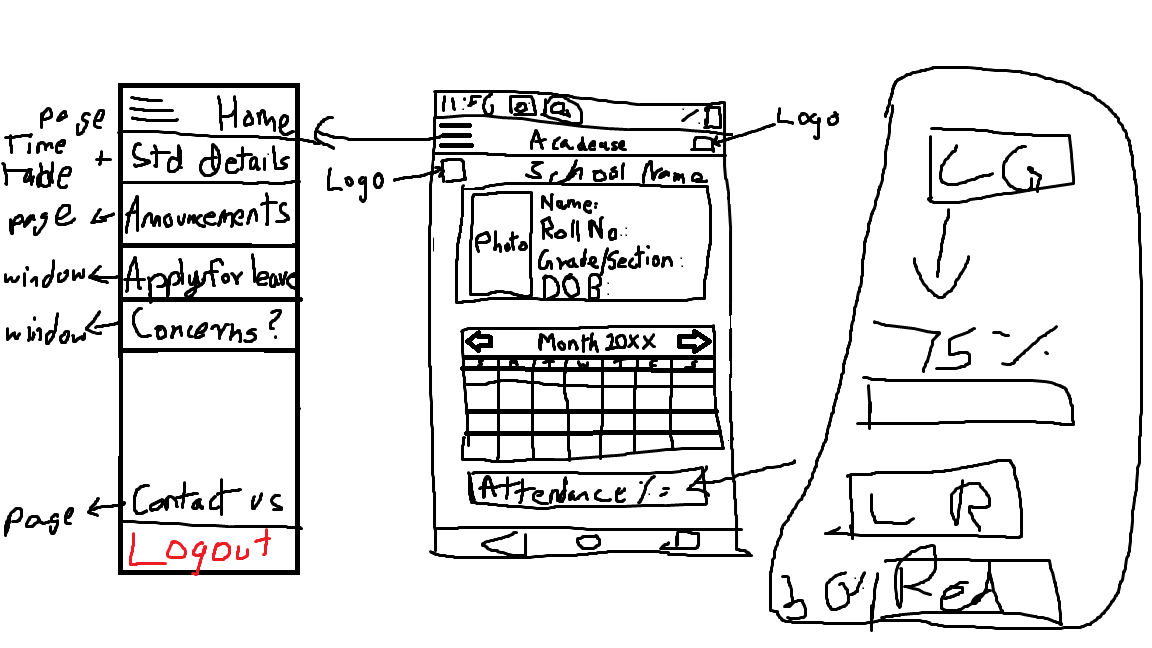 page
Time
table +
page
window
window
page
Home
Std details
Anouncements
Apply for leave
Concerns?
Contact us
Logout
11:56
Acadease
Logo
Logo
School Name
Photo
Name:
Roll No:
Grade/Section:
DOB:
Month 20XX
Attendance % =
LG
75%
LR
Red